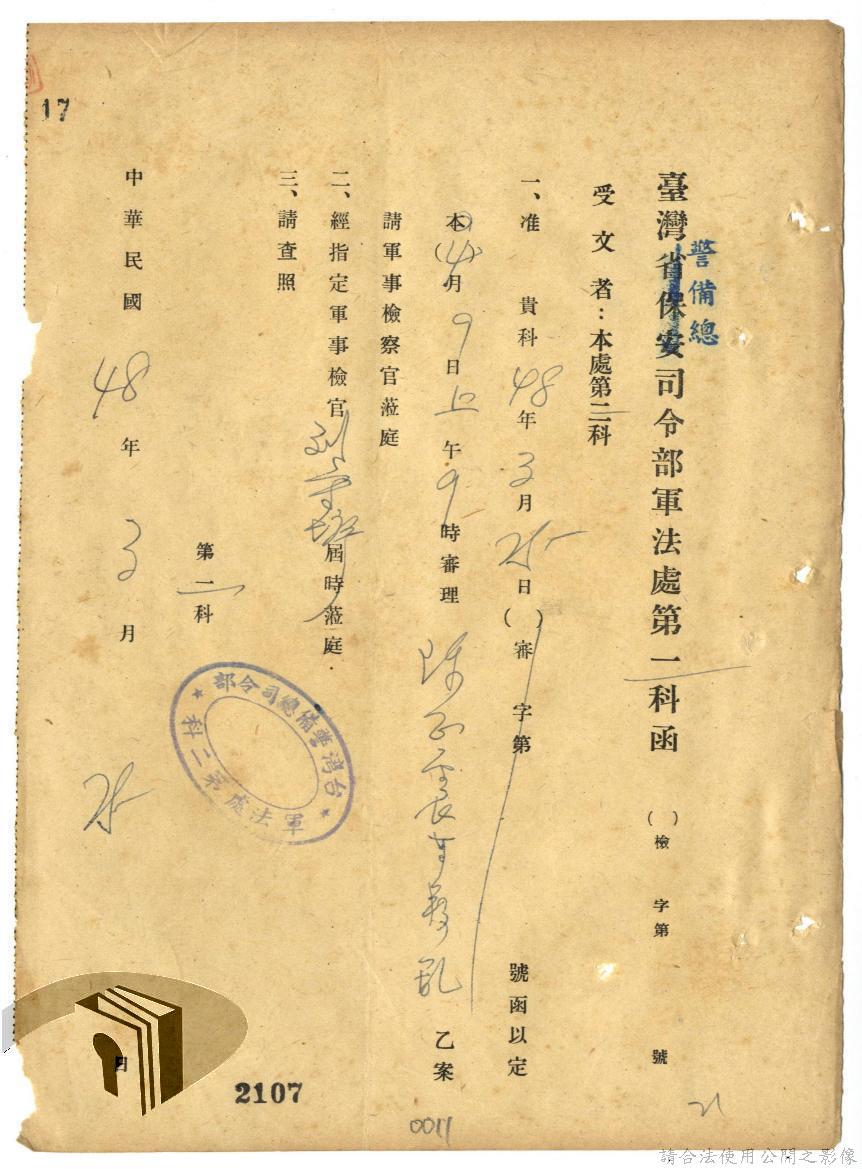 17
臺灣省保安司令部軍法處第一科函 ( )檢 字第 號
警備總
受文者：本處第二科
一、准 貴科48年3月25日( )審 字第 號函以定
本(4)月9日上午9時審理 叛亂 乙案
請軍事檢察官蒞庭
二、經指定軍事檢官 屆時蒞庭.
三、請查照
第二科
中華民國 48 年 3 月 25 日
台灣警備總司令部
軍法處第二科
2107
0011
21
請合法使用公開之影像